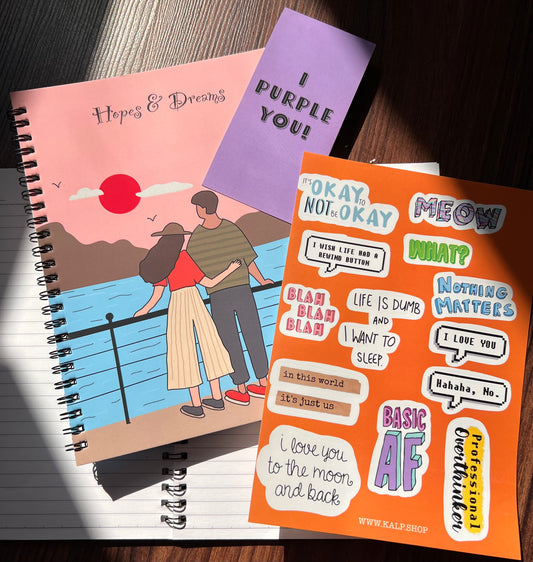 Hopes & Dreams
I
PURPLE
YOU!
IT'S OKAY TO
NOT BE OKAY
MEOW
I WISH LIFE HAD A
REWIND BUTTON
WHAT?
NOTHING
MATTERS
BLAH
BLAH
BLAH
LIFE IS DUMB
AND
I WANT TO
SLEEP.
I LOVE YOU
in this world
it's just us
Hahaha, No.
BASIC
AF
i love you
to the moon
and back
Professional
Overthinker
WWW.KALP.SHOP